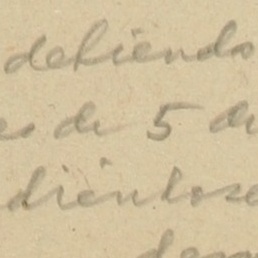 debiendo
es de 5 de
diéndose